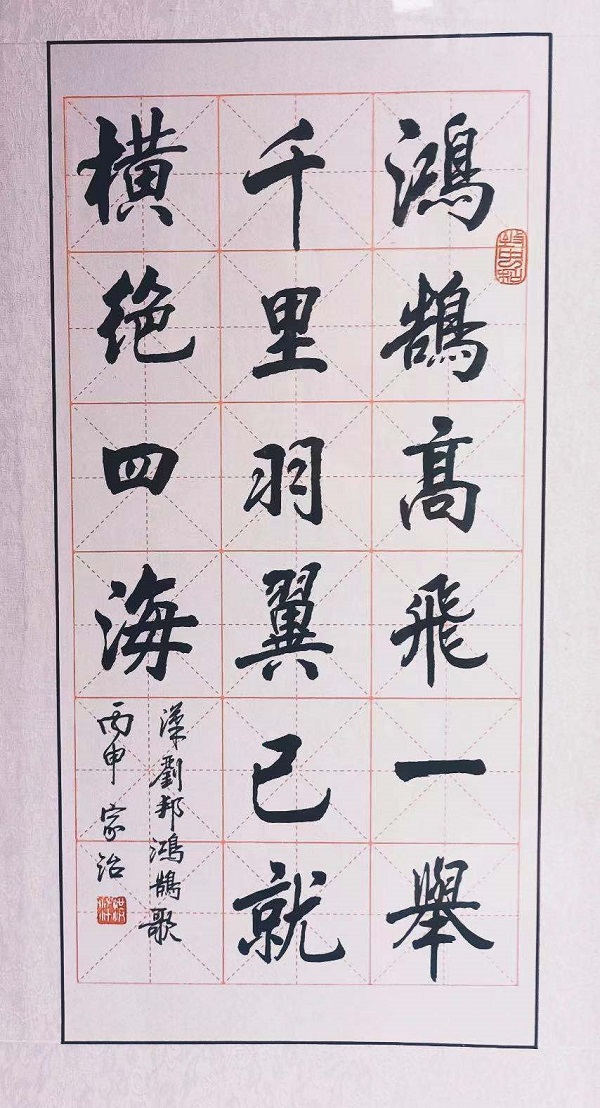 鴻鵠高飛一舉
千里羽翼已就
橫絕四海
漢劉邦鴻鵠歌
丙申 家治